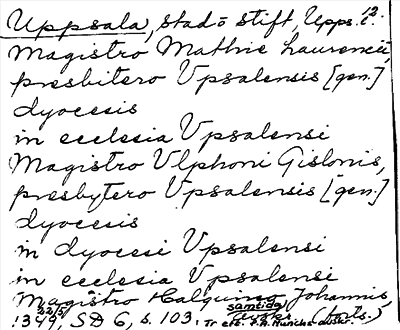 Uppsala, stad o stift, Upps. l. 12.
Magistro Mathie Laurencii,
presbitero Vpsalensis [gen.]
dyocesis
in ecclesia Vpsalensi
Magistro Vlphoni Gislonis,
presbytero Vpsalensis [gen.]
dyocesis
in dyocesi Vpsalensi
in ecclesia Vpsalensi
Magistro Johannis,
1349, SD 6, s. 103. Tr eft. samtida